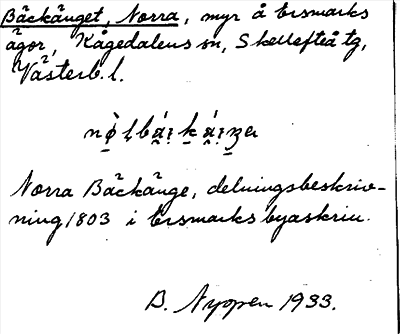 Bäckänget, Norra, myr å Ersmarks
ägor, Kågedalens sn, Skellefteå tg,
Västerb. l.
Norra Bäckänge, delningsbeskriv-
ning 1803 i Ersmarks byaskrin.
B. Nyopen 1933.